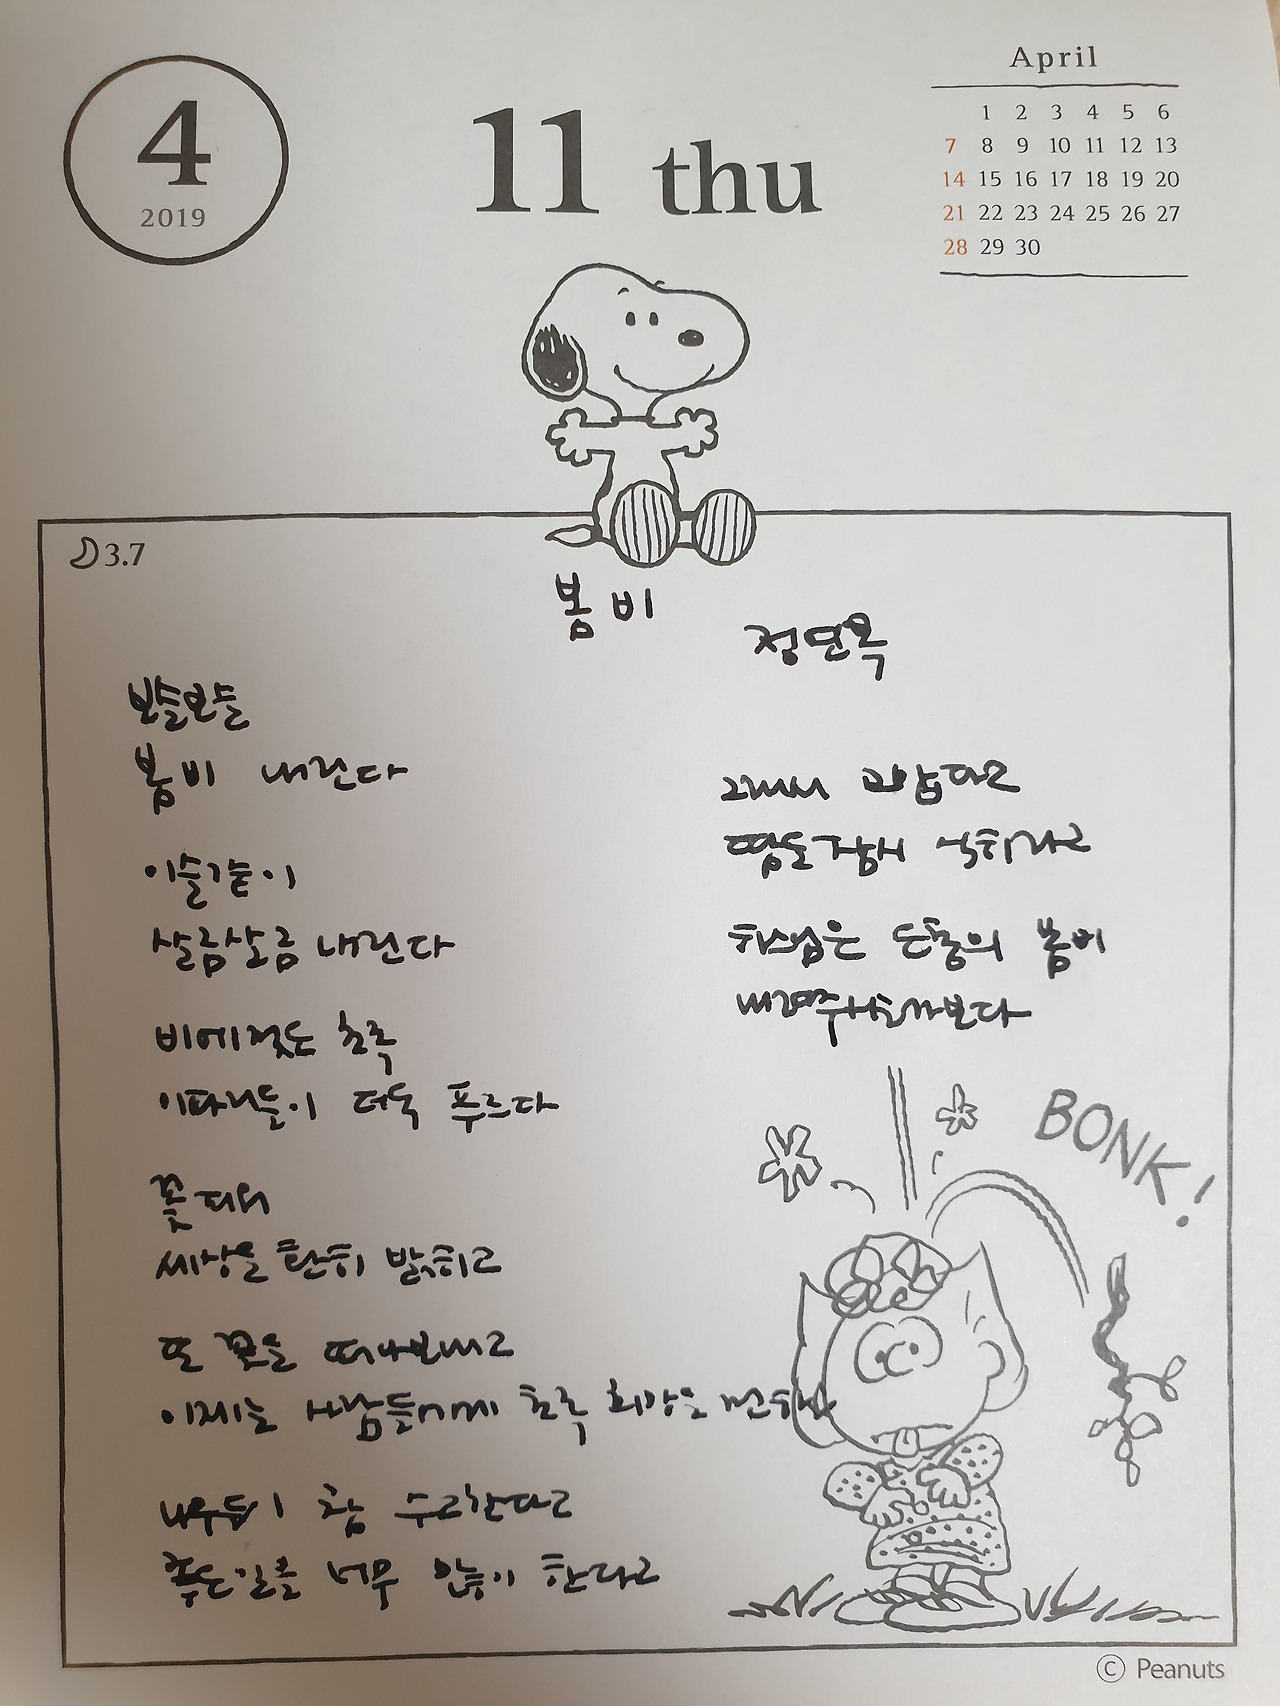 4
2019
11 thu
April
1 2 3 4 5 6
7 8 9 10 11 12 13
14 15 16 17 18 19 20
21 22 23 24 25 26 27
28 29 30
3.7
봄비
정연옥
보슬보슬
봄비 내린다
이슬같이
살금살금 내린다
비에젖은 초록
이파리들이 더욱 푸르다
꽃피워
세상을 환히 밝히고
또 꽃을 떠나보내고
이제는 사람들에게 초록 희망을 전하는
나무들이 참 수고한다고
좋은일을 너무 많이 한다고
그래서 고맙다고
땀도 식히라고
하느님은 은총의 봄비
내려주시는가보다
BONK!
© Peanuts